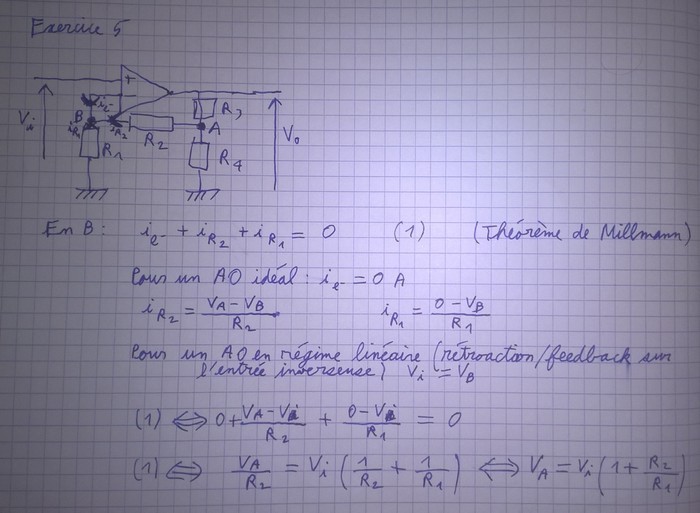 Exercice 5
+
-
i e-
Vi
B
iR1
iR2
R1
R2
R3
A
R4
V0
En B : i e- + iR2 + iR1 = 0 (1) (Théorème de Millmann)
Pour un AO idéal : i e- = 0 A
iR2 = (VA - VB)/R2 iR1 = (0 - VB)/R1
Pour un AO en régime linéaire (rétroaction/feedback sur
l'entrée inverseuse) Vi = VB
(1) ⇔ 0 + (VA - Vi)/R2 + (0 - Vi)/R1 = 0
(1) ⇔ VA/R2 = Vi (1/R2 + 1/R1) ⇔ VA = Vi (1 + R2/R1)